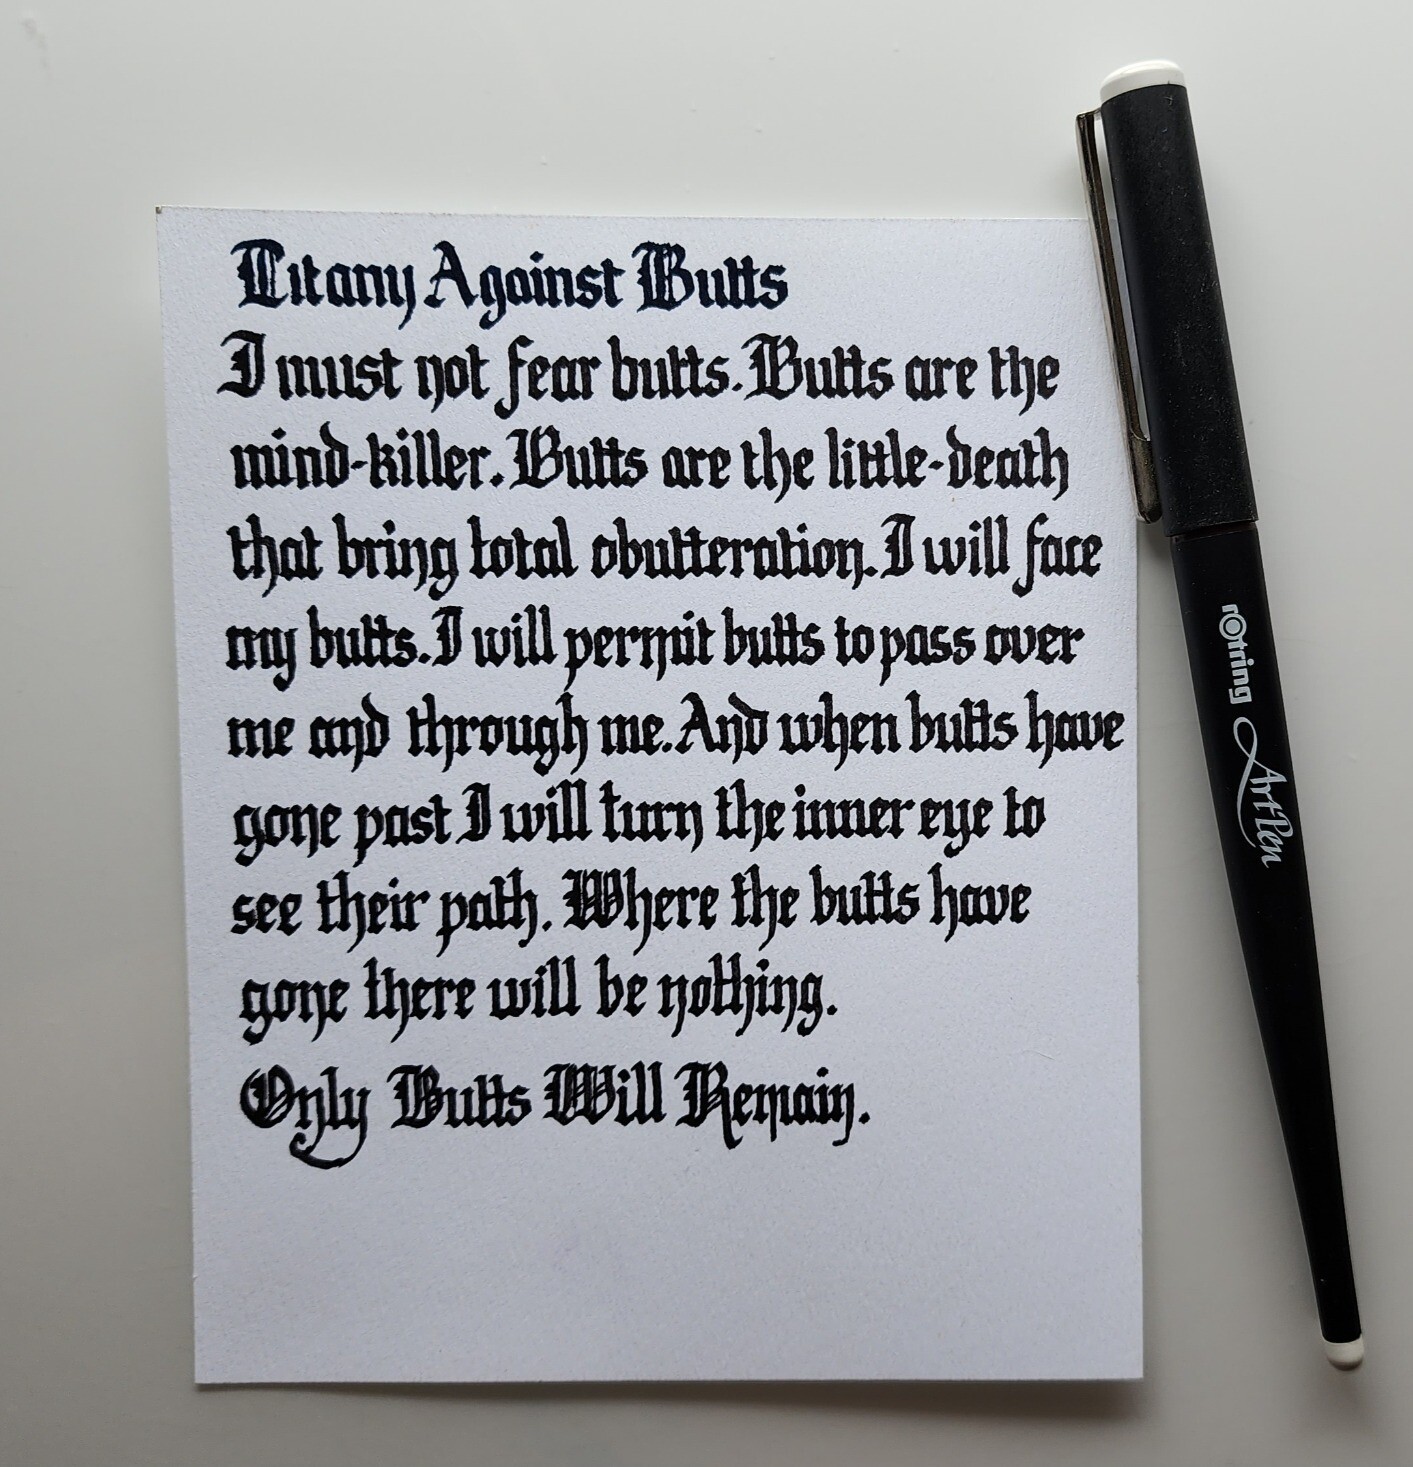 Litany Against Butts
I must not fear butts. Butts are the
mind-killer. Butts are the little-death
that bring total obutteration. I will face
my butts. I will permit butts to pass over
me and through me. And when butts have
gone past I will turn the inner eye to
see their path. Where the butts have
gone there will be nothing.
Only Butts Will Remain.
rotring ArtPen